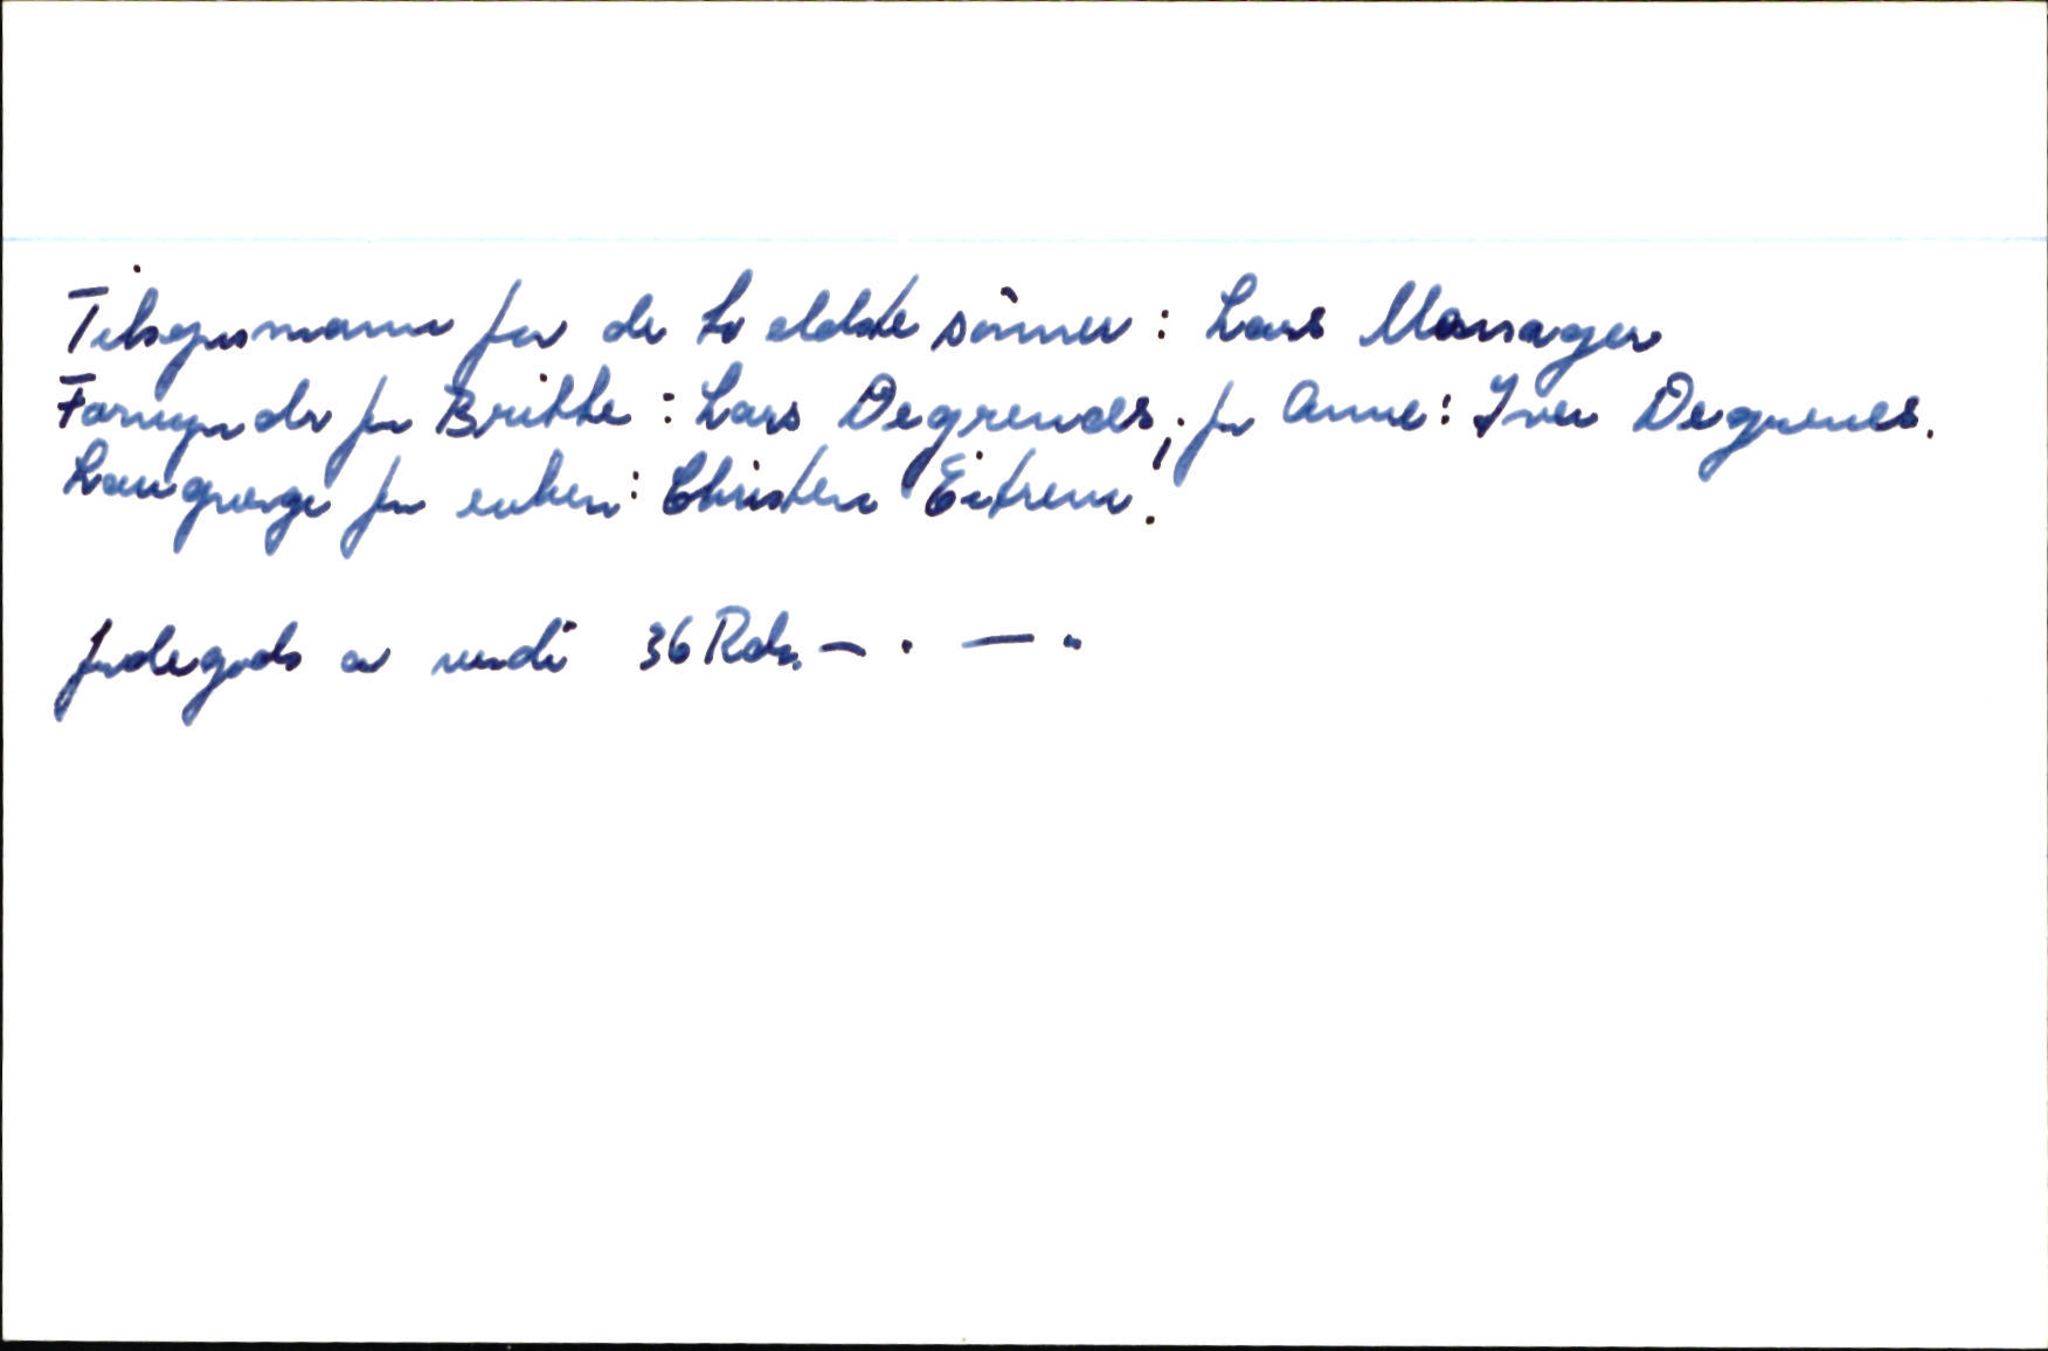 Tilsynsmann for de to eldste sönner: Lars Mansager
Formynder for Britte: Lars Degrenes, for Anne: Iver Degrenes.
Laugverge for enken: Christen Eitrem.
Jordegods a verdi 36 Rdr. — . — "